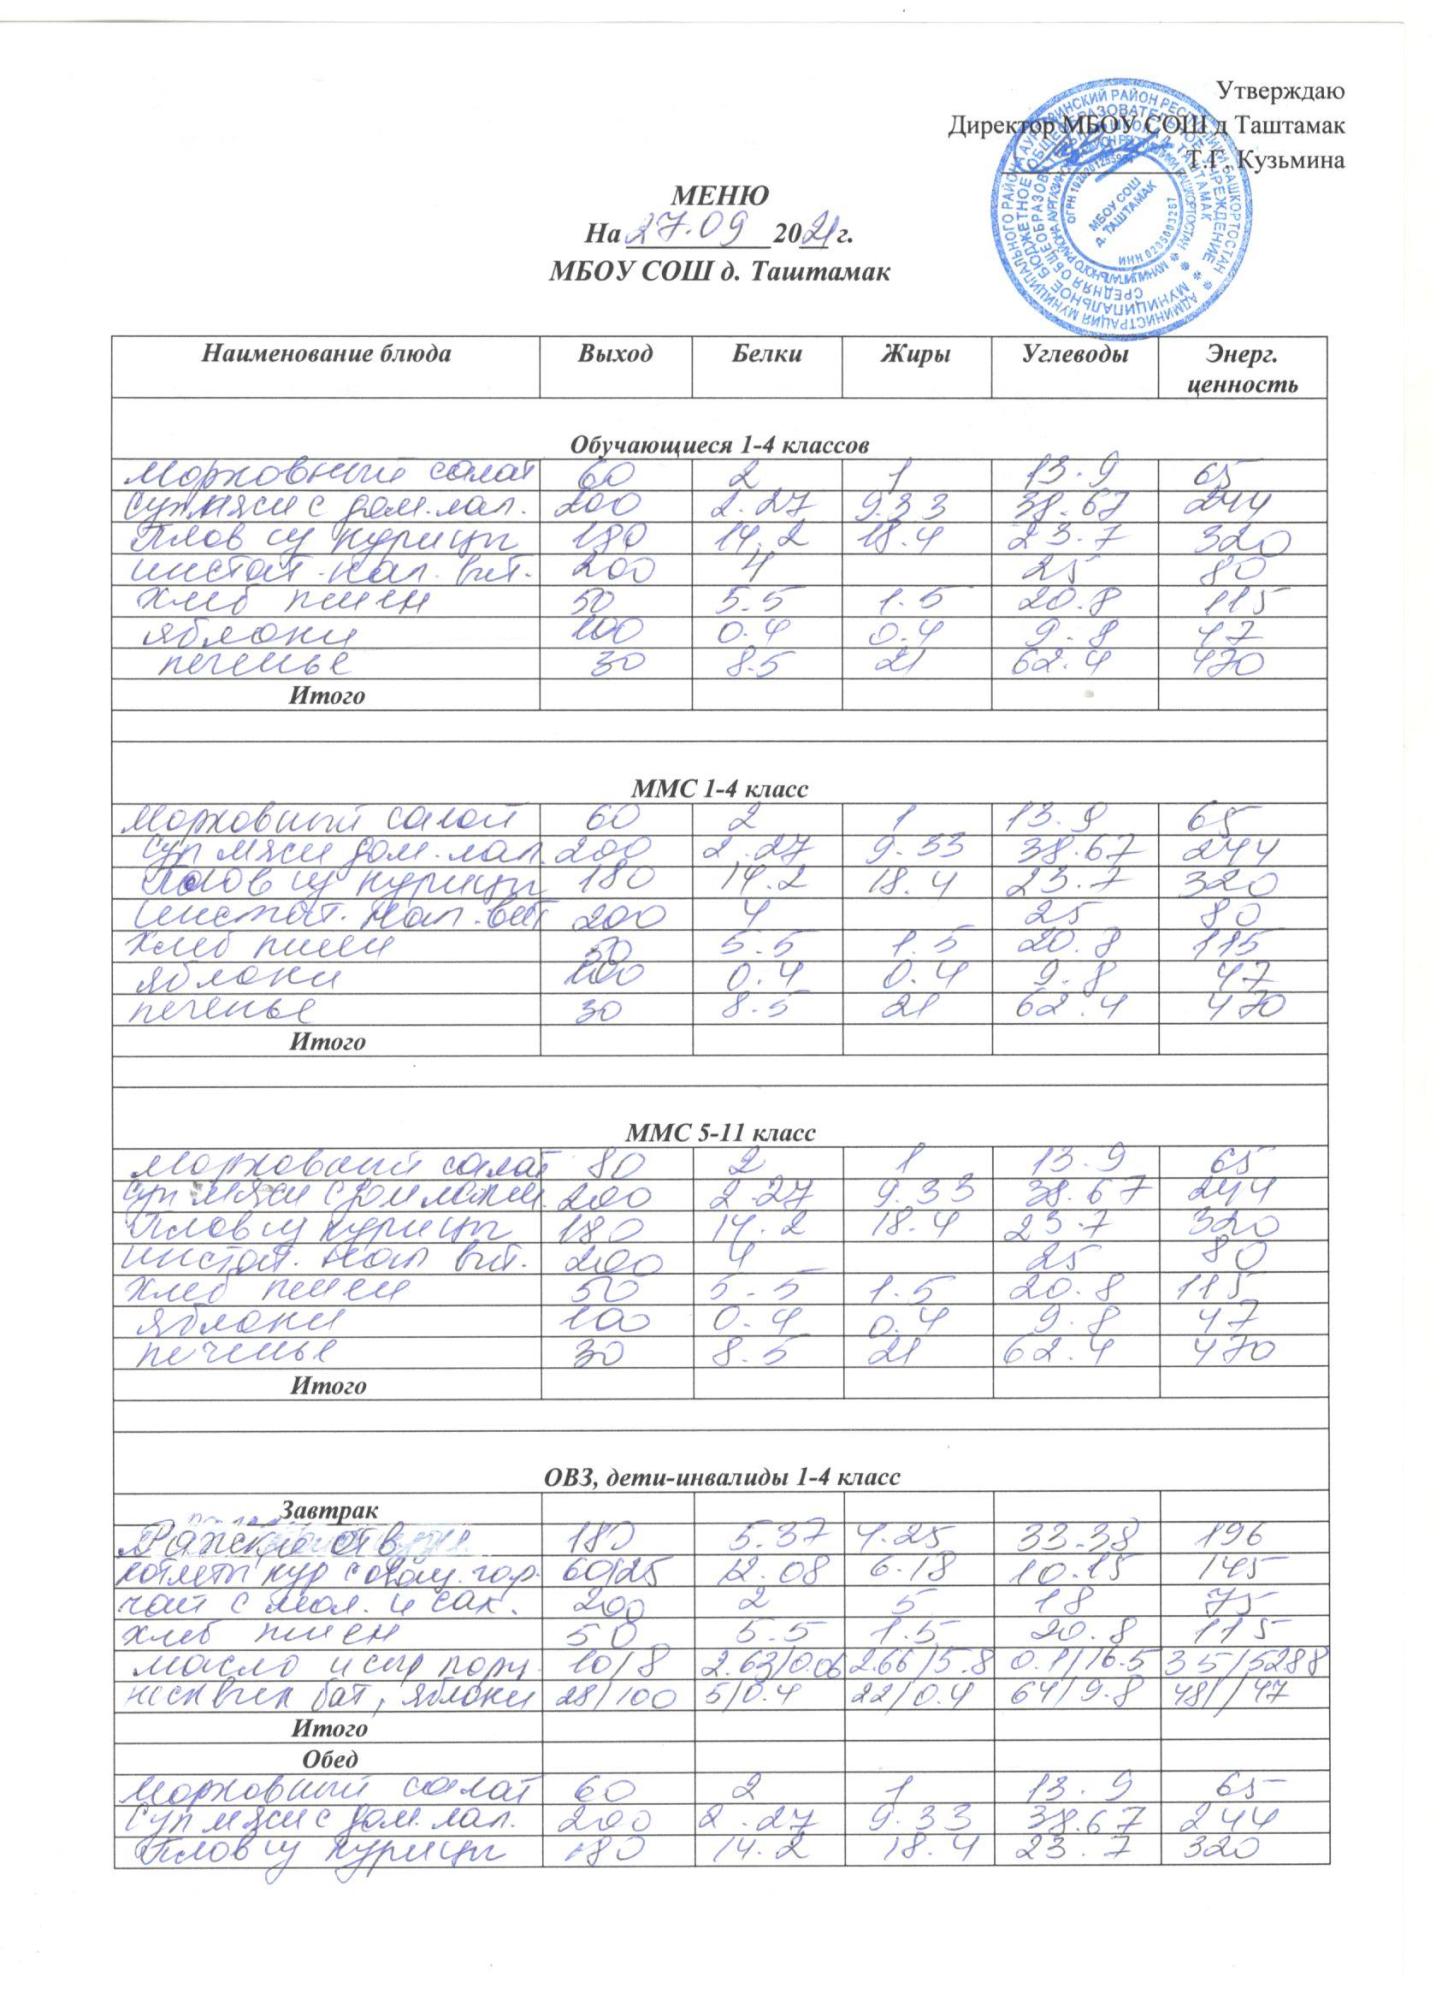 Утверждаю
Директор МБОУ СОШ д Таштамак
Т.Г. Кузьмина
МБОУ СОШ
д. ТАШТАМАК
МЕНЮ
На 27.09 2021 г.
МБОУ СОШ д. Таштамак
Наименование блюда Выход Белки Жиры Углеводы Энерг. ценность
Обучающиеся 1-4 классов
Морковный салат 60 2 1 13.9 65
Суп мясн с дом. лап. 200 2.27 9.33 38.67 244
Плов из курицы 180 14.2 18.4 23.7 320
инстат. нап. вит. 200 4 25 80
хлеб пшен 50 5.5 1.5 20.8 115
яблоки 100 0.4 0.4 9.8 47
печенье 30 8.5 21 62.4 470
Итого
ММС 1-4 класс
Морковный салат 60 2 1 13.9 65
Суп мясн дом. лап. 200 2.27 9.33 38.67 244
Плов из курицы 180 14.2 18.4 23.7 320
инстат. нап. вит 200 4 25 80
хлеб пшен 50 5.5 1.5 20.8 115
яблоки 100 0.4 0.4 9.8 47
печенье 30 8.5 21 62.4 470
Итого
ММС 5-11 класс
Морковный салат 80 2 1 13.9 65
Суп мясн с дом лапш. 200 2.27 9.33 38.67 244
Плов из курицы 180 14.2 18.4 23.7 320
инстат. нап вит. 200 4 25 80
хлеб пшен 50 5.5 1.5 20.8 115
яблоки 100 0.4 0.4 9.8 47
печенье 30 8.5 21 62.4 470
Итого
ОВЗ, дети-инвалиды 1-4 класс
Завтрак
180 5.37 4.25 33.38 196
котлеты кур с овощ. гар. 60/25 12.08 6.18 10.15 145
чай с мол. и сах. 200 2 5 18 75
хлеб пшен 50 5.5 1.5 20.8 115
масло и сыр порц. 10/8 2.63/0.06 2.66/5.8 0.1/16.5 35/5288
бат, яблоки 28/100 5/0.4 22/0.4 64/9.8 481/47
Итого
Обед
Морковный салат 60 2 1 13.9 65
Суп мясн с дом. лап. 200 2.27 9.33 38.67 244
Плов из курицы 180 14.2 18.4 23.7 320